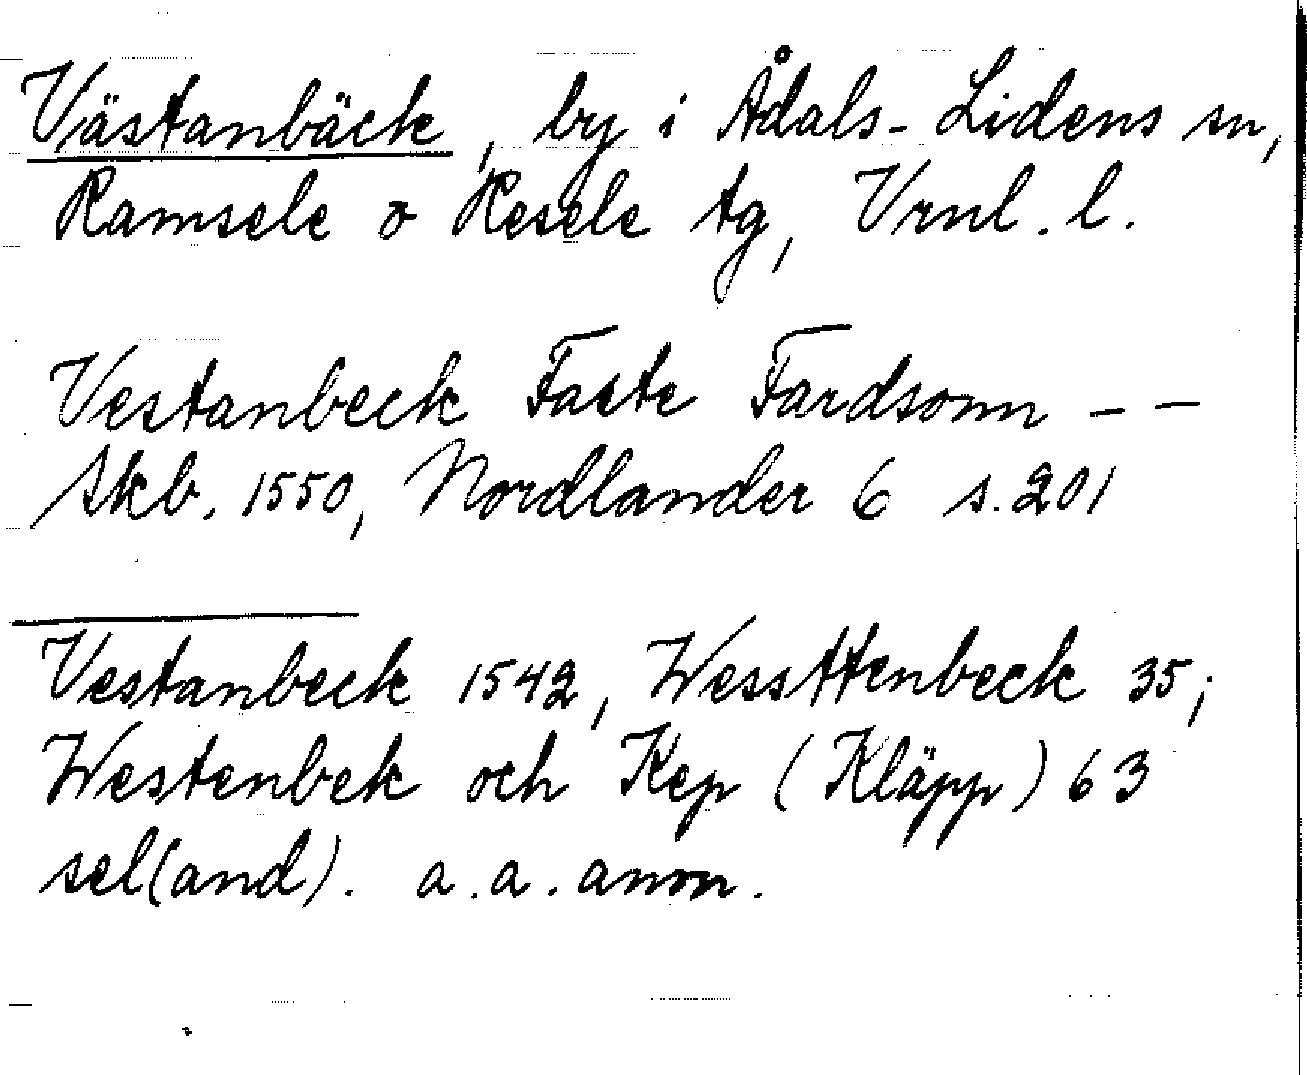 Västanbäck, by i Ådals-Lidens sn,
Ramsele o Resele tg, Vrnl. l.
Vestanbeck Faste Fardsonn – –
Skb. 1550, Nordlander 6 s. 201
Vestanbeck 1542, Wessttenbeck 35;
Westenbek och Kep (Kläpp) 63
sel(and). a.a. anm.